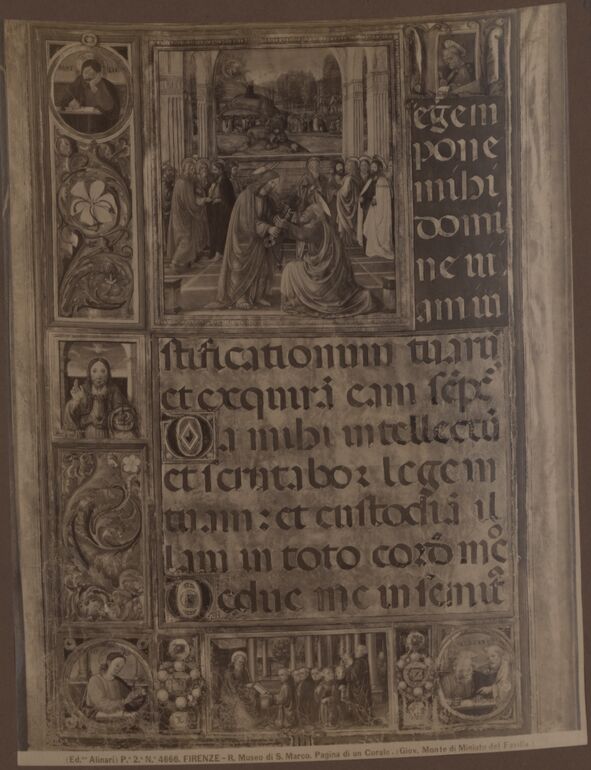 Legem
pone
mihi
domi
ne ui
am iu
stificationum tuarū
et exquirā eam sēpᵉ
Da mihi intellectū
et scrutabor legem
tuam: et custodiā il
lam in toto cord mō
Deduc me in semit
(Ed.ⁿⁱ Alinari) P.ᵉ 2.ª N.º 4666. FIRENZE - R. Museo di S. Marco. Pagina di un Corale. (Giov. Monte di Miniato del Favilla.)